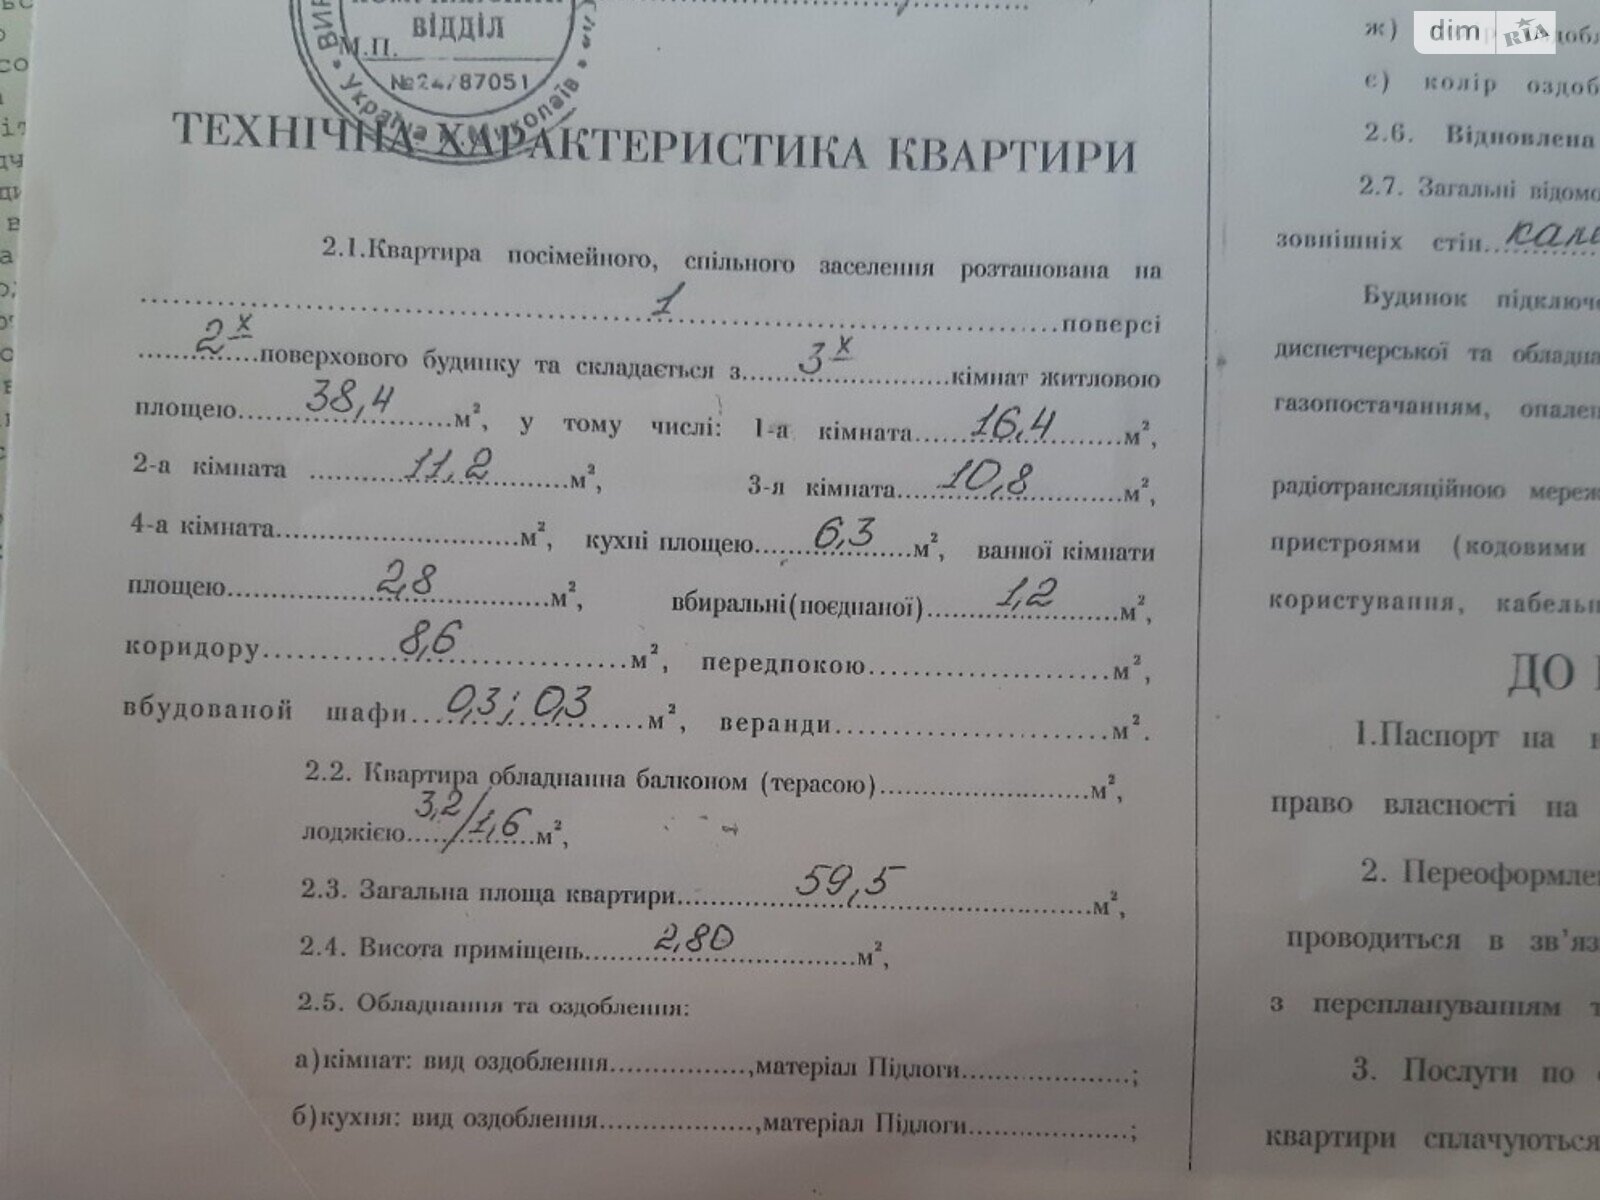 dim RIA
ВІДДІЛ
М.П.
№24/87051
Україна м. Миколаїв
ТЕХНІЧНА ХАРАКТЕРИСТИКА КВАРТИРИ
2.1.Квартира посімейного, спільного заселення розташована на
1 поверсі
2х поверхового будинку та складається з 3х кімнат житловою
площею 38,4 м², у тому числі: 1-а кімната 16,4 м²,
2-а кімната 11,2 м², 3-я кімната 10,8 м²,
4-а кімната м², кухні площею 6,3 м², ванної кімнати
площею 2,8 м², вбиральні(поєднаної) 1,2 м²,
коридору 8,6 м², передпокою м²,
вбудованой шафи 0,3; 0,3 м², веранди м².
2.2. Квартира обладнанна балконом (терасою) м²,
лоджією 3,2/1,6 м²,
2.3. Загальна площа квартири 59,5 м²,
2.4. Висота приміщень 2,80 м²,
2.5. Обладнання та оздоблення:
а)кімнат: вид оздоблення , матеріал Підлоги ;
б)кухня: вид оздоблення , матеріал Підлоги ;
ж)
є) колір оздоб
2.6. Відновлена
2.7. Загальні відомо
зовнішніх стін
Будинок підключе
диспетчерської та обладна
газопостачанням, опален
радіотрансляційною мереж
пристроями (кодовими
користування, кабельн
ДО
1.Паспорт на
право власності на
2. Переоформле
проводиться в зв'яз
з переплануванням т
3. Послуги по
квартири сплачуються